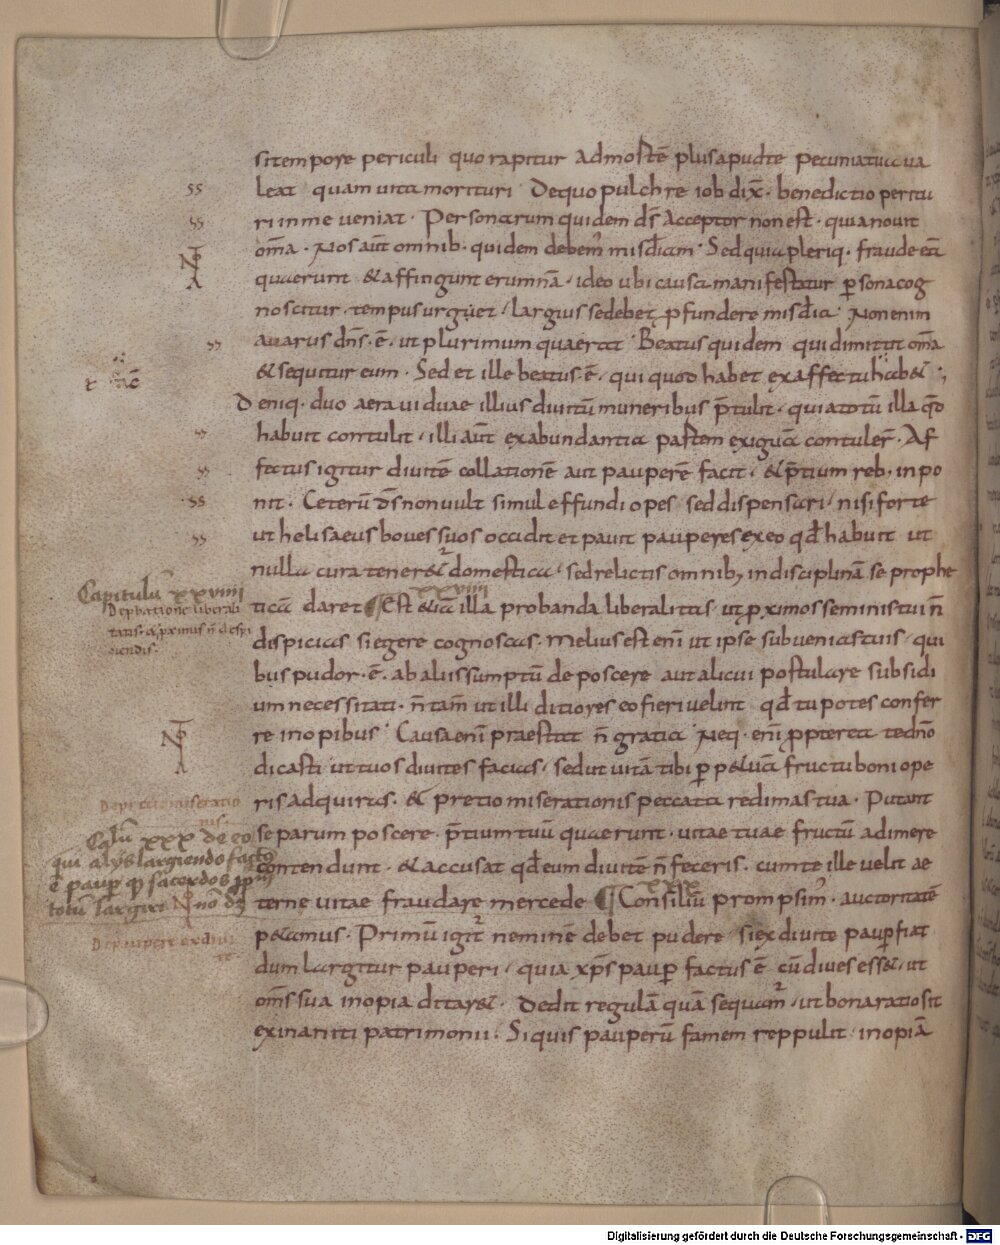 si tempore periculi quo rapitur ad mortē plus apud te pecunia tua ua
leat quam uita morituri. De quo pulchre iob dix̄. benedictio peritu
ri in me ueniat. Personarum quidem d̄s acceptor non est. quia nouit
om̄a. Nos aūt omnib. quidem debem' mis̄diam. Sed quia pleriq. fraude eā
quaerunt & affingunt erumnā. ideo ubi causa manifestatur ꝑsona cog
noscitur. tempus urguet. largius se debet ꝓfundere mis̄dia. Non enim
auarus dn̄s. ē. ut plurimum quaerat. Beatus quidem qui dimittit om̄a
& sequitur eum. Sed et ille beatus. ē. qui quod habet ex affectu hab&
Deniq. duo aera uiduae illius diuitū muneribus p̄tulit. quia totū illa qd̄
habuit contulit. illi aūt ex abundantia partem exiguā contuler̄. Af
fectus igitur diuitē collationē aut pauperē facit. & p̄tium reb. inpo
nit. Ceterū d̄s non uult simul effundi opes sed dispensari. nisi forte
ut helisaeus boues suos occidit et pauit pauperes ex eo qd̄ habuit ut
nulla cura tener&ur domestica. sed relictis omnib; in disciplinā se prophe
Capitulū xxviiii
xxviiii
ticā daret ¶ Est &iā illa probanda liberalitas. ut ꝓximos seminis tui n̄
De ꝓbatione liberali
tatis. & proximis n̄ despi
ciendis.
dispicias si egere cognoscas. Melius est eni ut ipse subuenias tuis. qui
bus pudor. ē. ab aliis sumptū deposcere aut alicui postulare subsidi
um necessitati. n̄ tam̄ ut illi ditiores eo fieri uelint qd̄ tu potes confer
re inopibus. Causa enī praestat n̄ gratia. Neq. enī ꝓpterea te dn̄o
dicasti ut tuos diuites facias. sed ut uitā tibi ꝑp&uā fructu boni ope
ris adquiras. & pretio miserationis peccata redimas tua. Putant
se parum poscere. p̄tium tuū quaerunt. uitae tuae fructū adimere
contendunt. & accusat qd̄ eum diuitē n̄ feceris. cum te ille uelit ae
Caplū xxx de eo
qui alijs largiendo fact
ē paup
xxx
ternae uitae fraudare mercede ¶ Consiliū prompsim'. auctoritatē
p&amus. Primū igit̄ neminē debet pudere. si ex diuite paupꝑ fiat
dum largitur pauperi. quia xp̄s paupꝑ factus ē cū diues ess&. ut
om̄s sua inopia ditar&. Dedit regulā quā sequam̄. ut bona ratio sit
exinaniti patrimonii. Si quis pauperū famem reppulit. inopiā
Digitalisierung gefördert durch die Deutsche Forschungsgemeinschaft - DFG